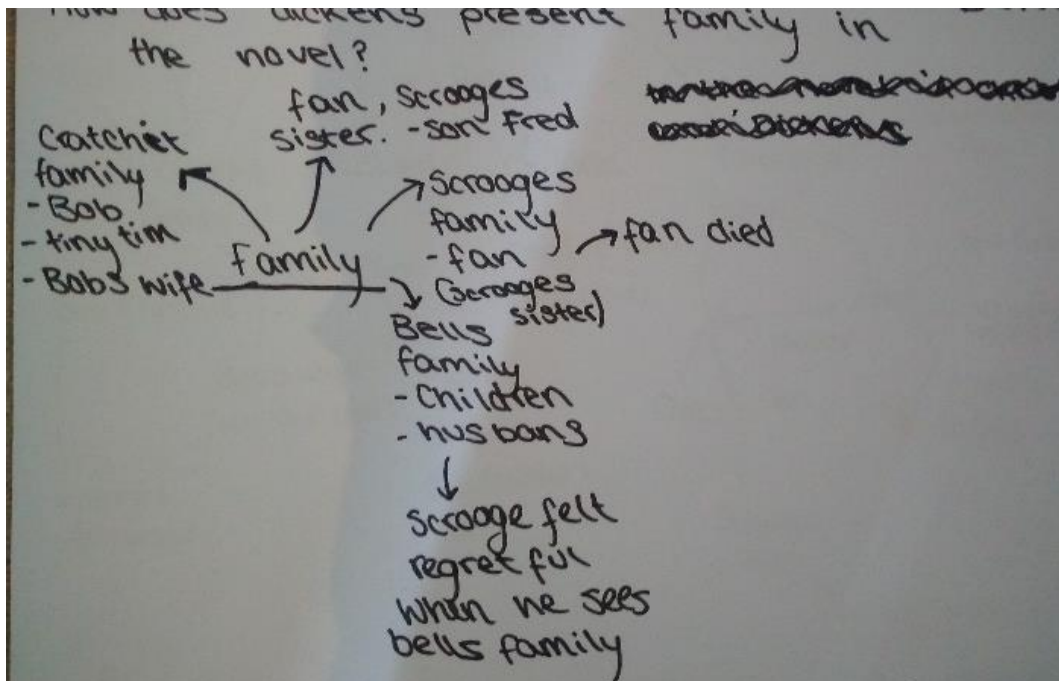 How does dickens present family in
the novel?
fan, Scrooges
sister. - son fred
Cratchet
family
- Bob
- tiny tim
- Bobs wife
family
Scrooges
family
- fan
(Scrooges
sister)
fan died
Bells
family
- Children
- husbans
Scrooge felt
regretful
when he sees
bells family